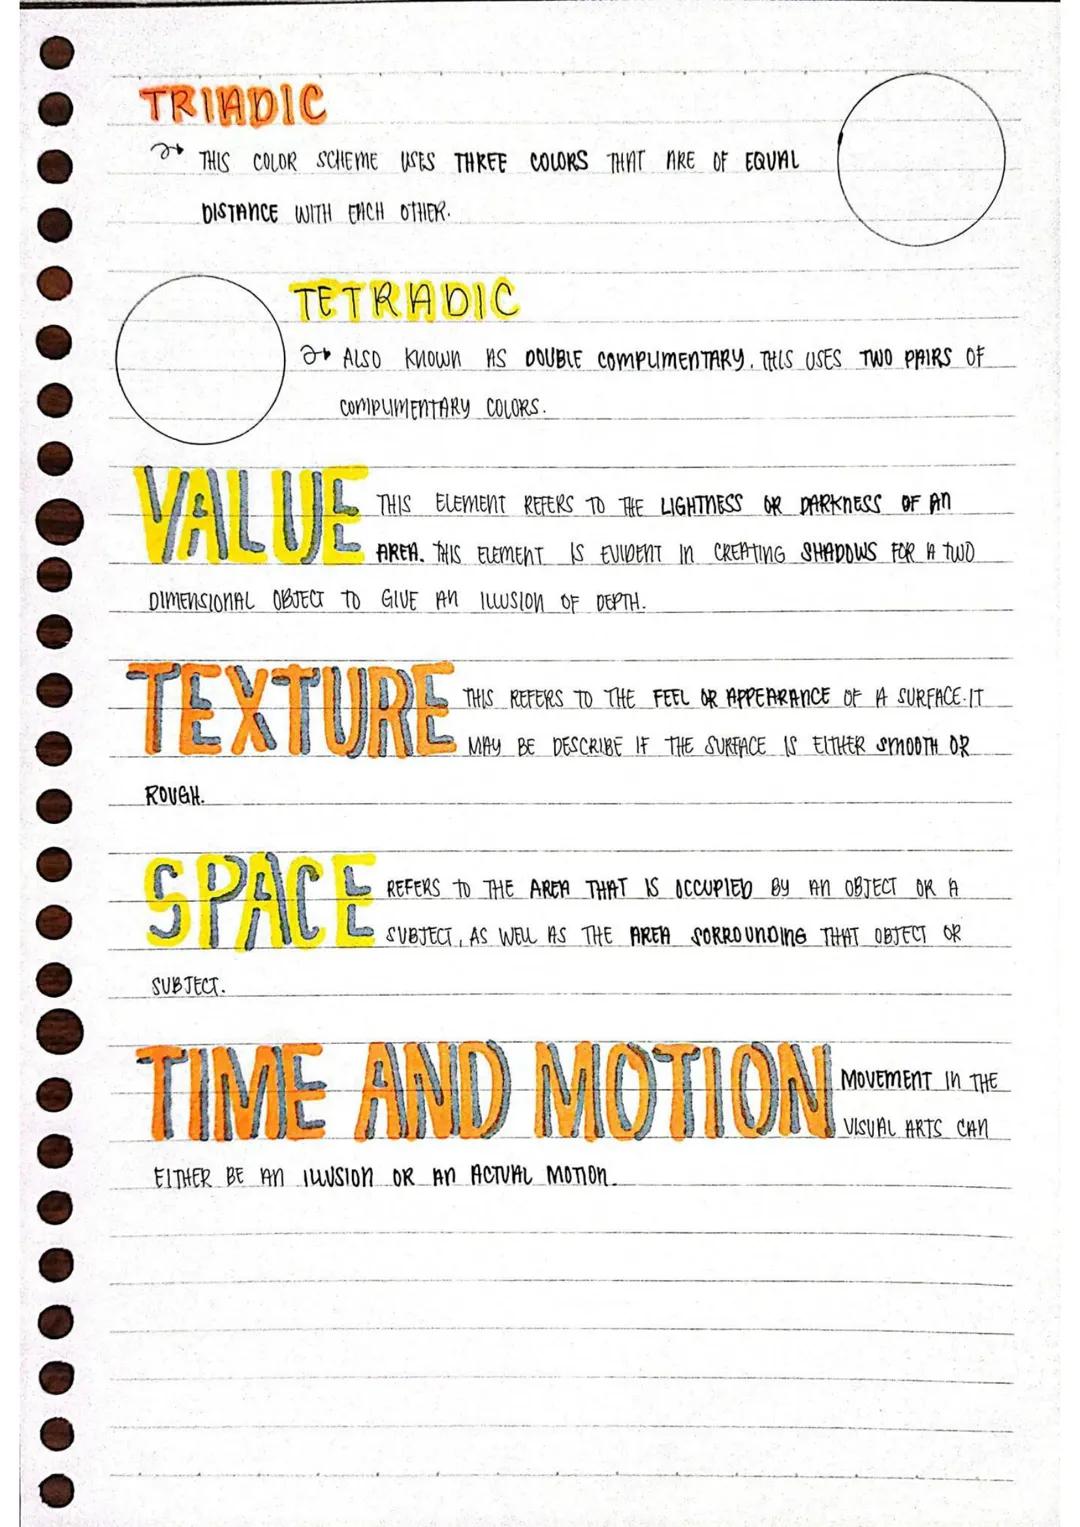 TRIADIC
THIS COLOR SCHEME USES THREE COLORS THAT ARE OF EQUAL
DISTANCE WITH EACH OTHER.
TETRADIC
ALSO KNOWN AS DOUBLE COMPLIMENTARY. THIS USES TWO PAIRS OF
COMPLIMENTARY COLORS.
VALUE THIS ELEMENT REFERS TO THE LIGHTNESS OR DARKNESS OF AN
AREA. THIS ELEMENT IS EVIDENT IN CREATING SHADOWS FOR A TWO
DIMENSIONAL OBJECT TO GIVE AN ILLUSION OF DEPTH.
TEXTURE THIS REFERS TO THE FEEL OR APPEARANCE OF A SURFACE. IT
MAY BE DESCRIBE IF THE SURFACE IS EITHER SMOOTH OR
ROUGH.
SPACE REFERS TO THE AREA THAT IS OCCUPIED BY AN OBJECT OR A
SUBJECT, AS WELL AS THE AREA SORROUNDING THAT OBJECT OR
SUBJECT.
TIME AND MOTION MOVEMENT IN THE
VISUAL ARTS CAN
EITHER BE AN ILLUSION OR AN ACTUAL MOTION.